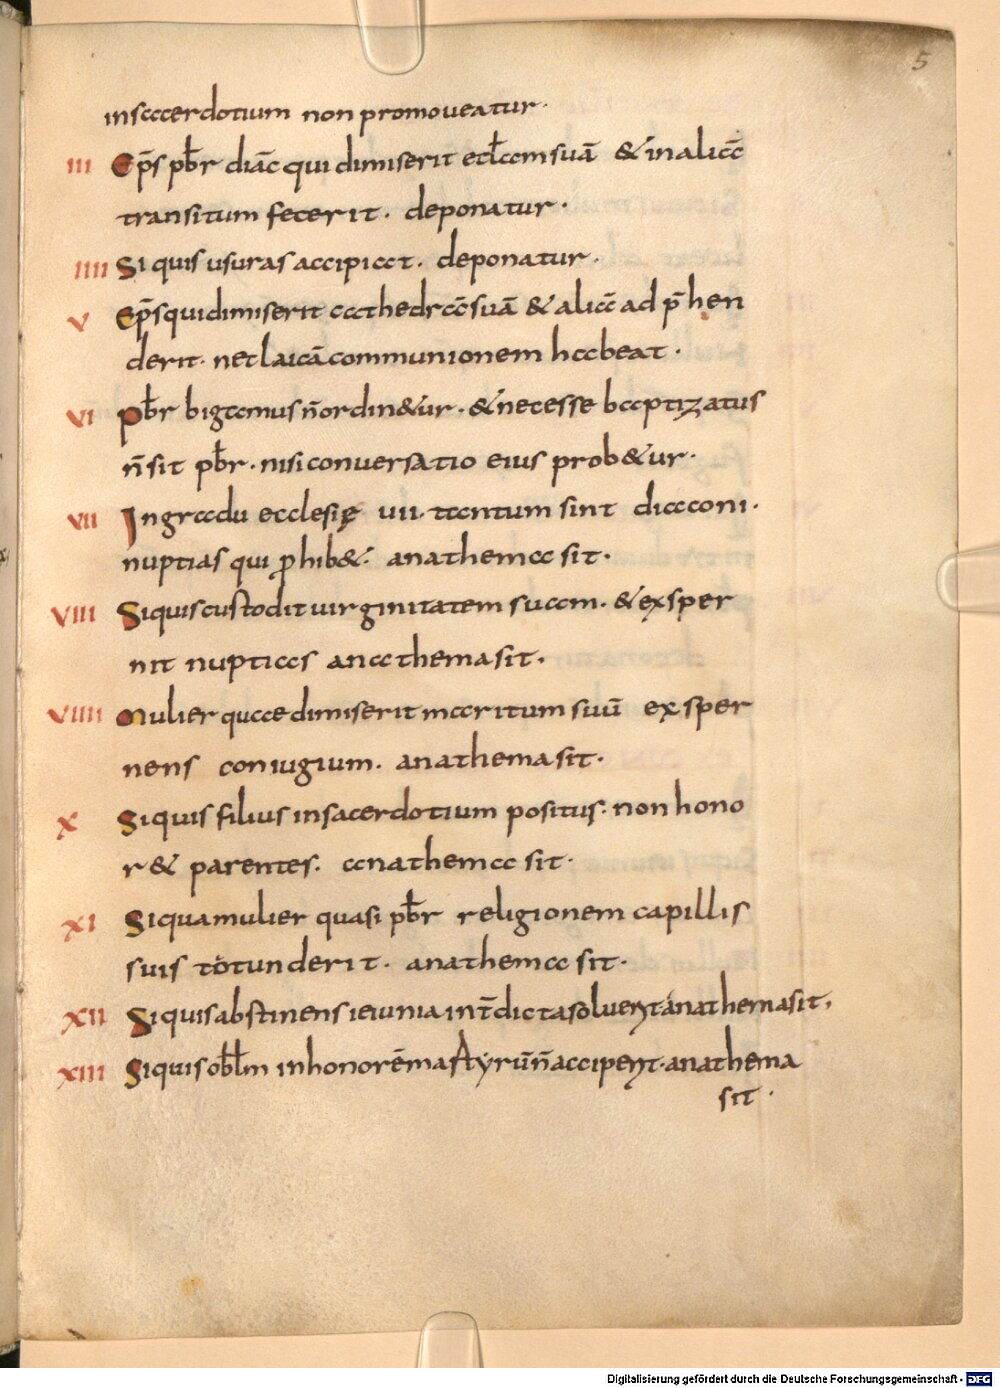 5
insacerdotium non promoueatur·
III Ep̄s pb̅r diac̄ qui dimiserit eccl̅am suā & in aliā
transitum fecerit. deponatur·
IIII Si quis usuras accipiat. deponatur.
V Ep̄s qui dimiserit cathedrā suā & aliā ad p̄hen
derit. nec laicā communionem habeat·
VI Pb̅r bigamus n̄ ordin&ur· & necesse baptizatus
n̄ sit pb̅r· nisi conuersatio eius prob&ur·
VII Ingradu ecclesię uii· tantum sint diaconi·
nuptias qui ꝓhib&· anathema sit·
VIII Siquis custodit uirginitatem suam. & exsper
nit nuptias anathema sit·
VIIII Mulier quae dimiserit maritum suū exsper
nens coniugium. anathema sit·
X Siquis filius in sacerdotium positus· non hono
r& parentes. anathema sit·
XI Siqua mulier quasi pb̅r religionem capillis
suis totunderit. anathema sit·
XII Siquis abstinens ieiunia int̄dicta soluerit anathema sit,
XIII Siquis obl̅m in honorē martyrū n̄ acciperit· anathema
sit·
Digitalisierung gefördert durch die Deutsche Forschungsgemeinschaft - DFG